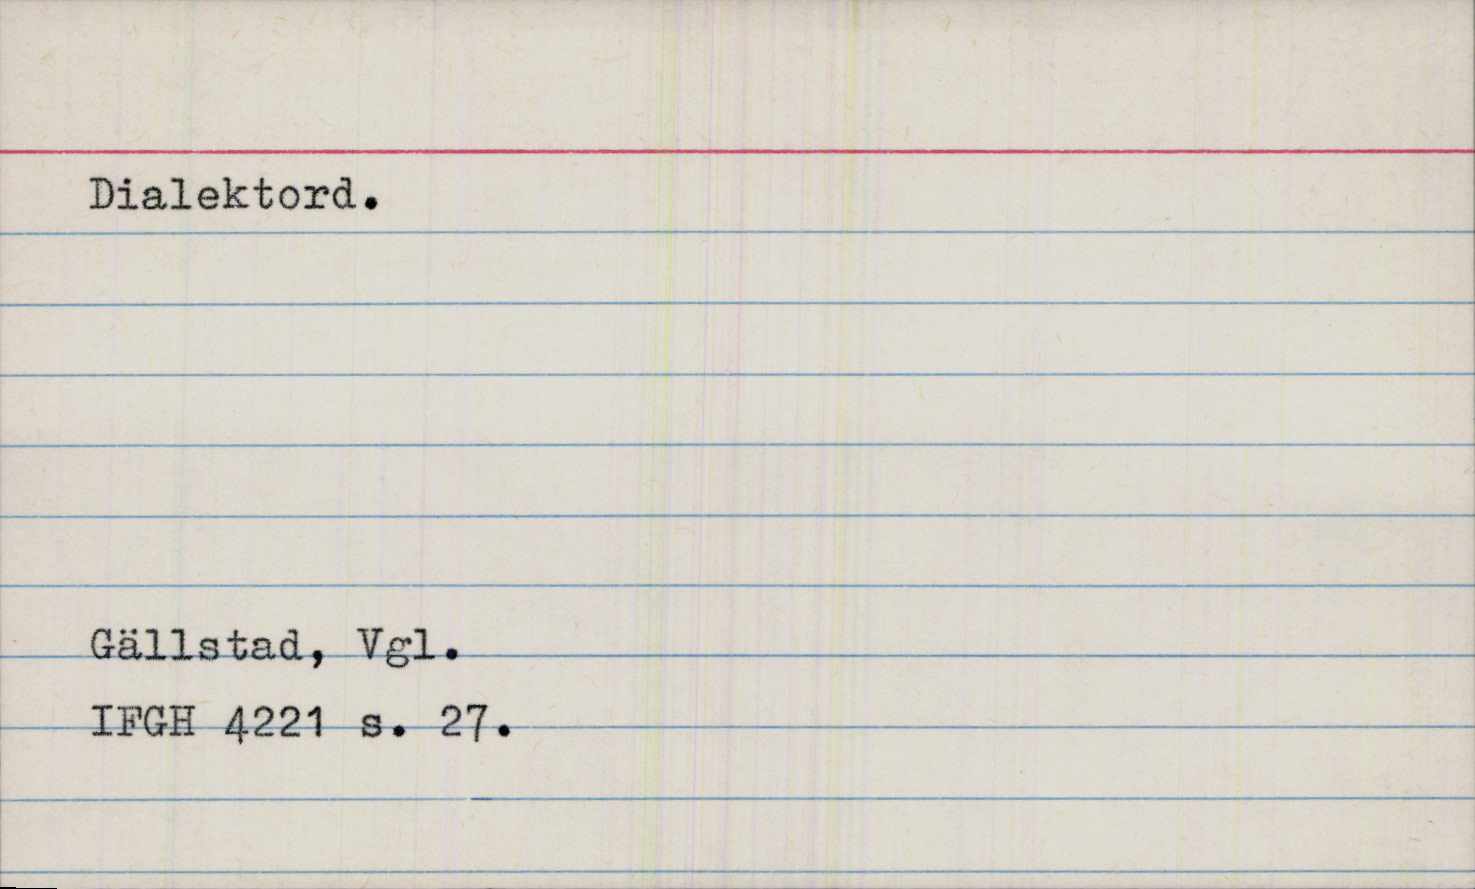 Dialektord.
Gällstad, Vgl.
IFGH 4221 s. 27.